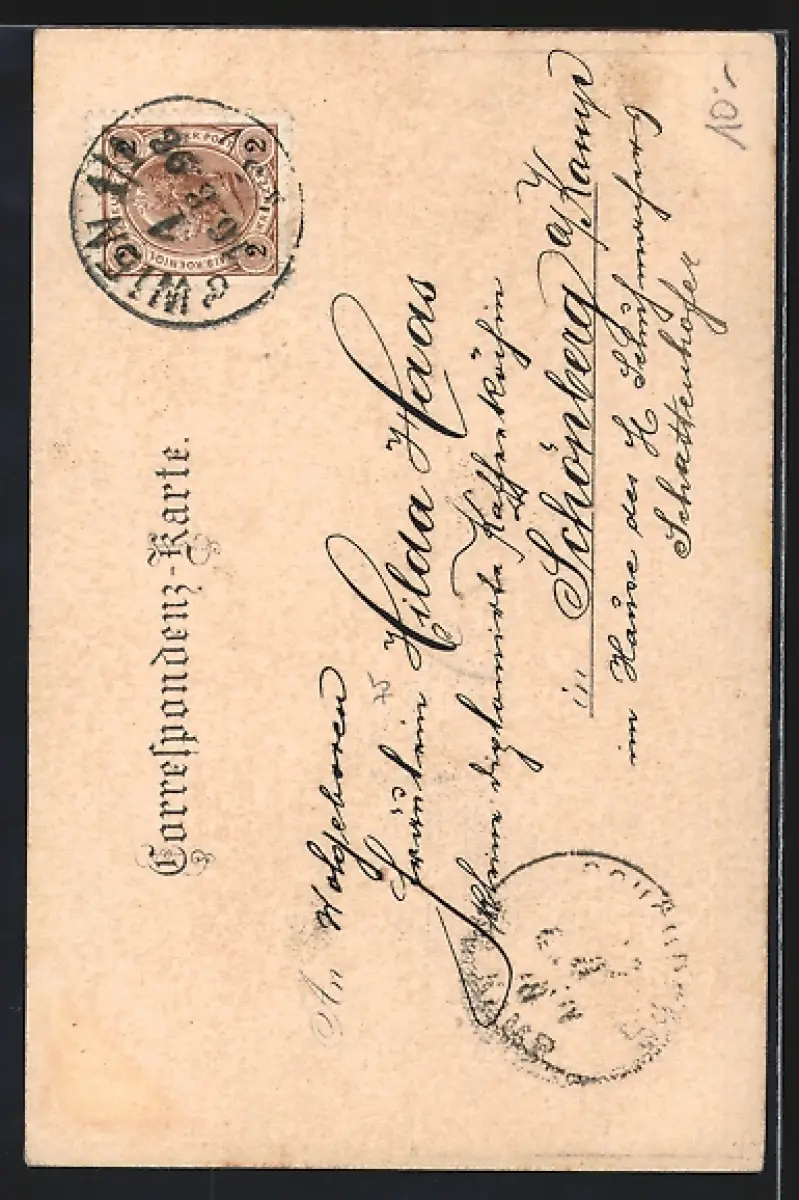 Correspondenz-Karte.
WIEN 1/1
1
98
2 2
2 2
An Wolgeboren
Fräulein Hilda Haas
diplomirte Kaffeeköchin
in Schönberg a/Kamp
im Hause des H Schuhmachers
Schattenhofer
75
10.-